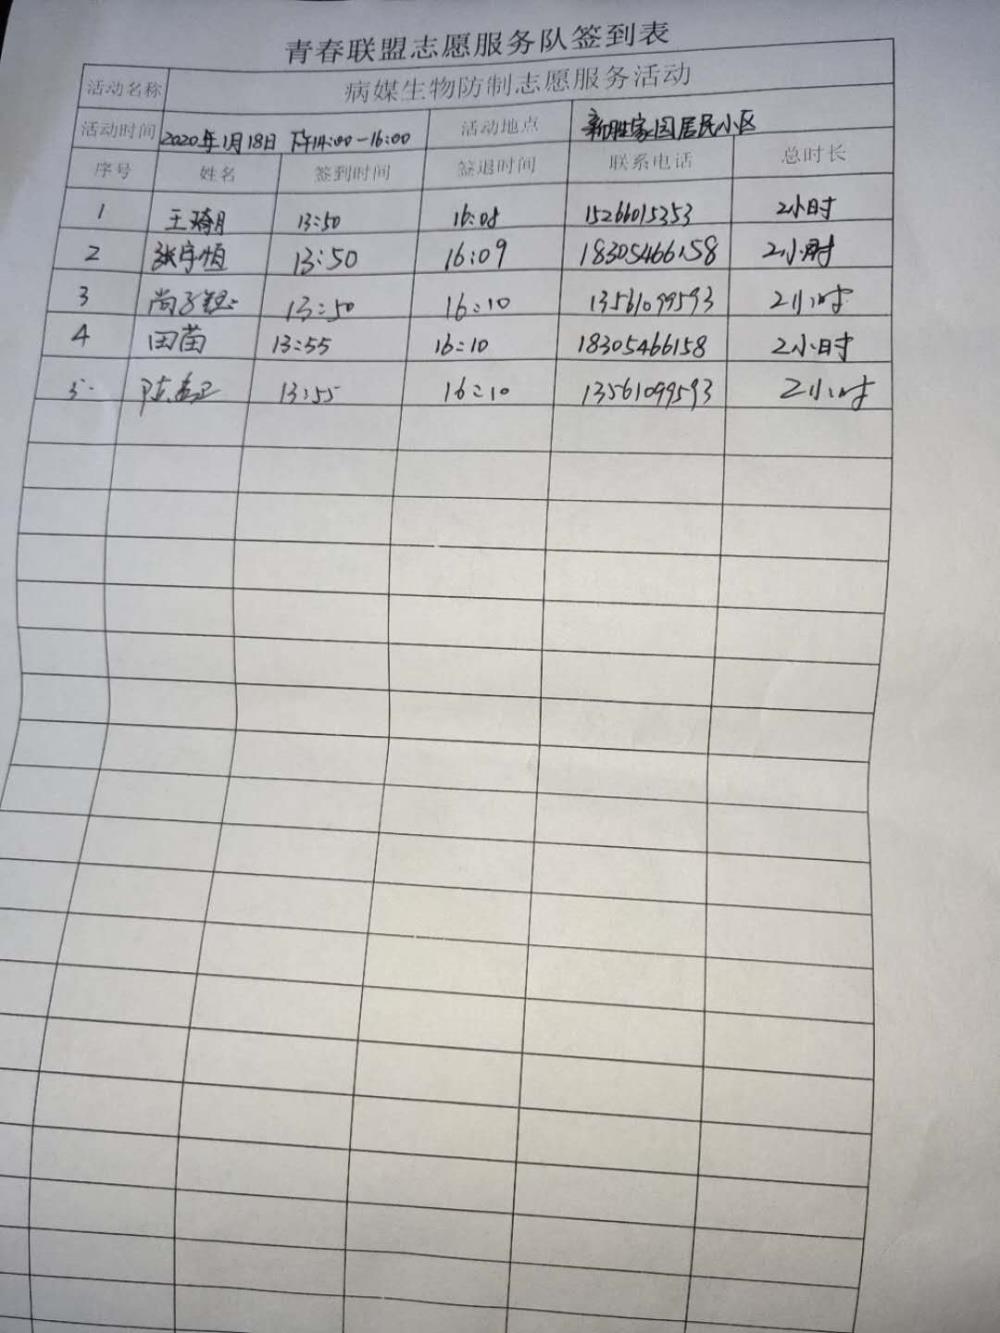 青春联盟志愿服务队签到表
活动名称 病媒生物防制志愿服务活动
活动时间 2020年1月18日 下午14:00-16:00 活动地点 新胜家园居民小区
序号 姓名 签到时间 签退时间 联系电话 总时长
1 王琦月 13:50 16:08 15266015353 2小时
2 张宇恒 13:50 16:09 18305466158 2小时
3 尚子钰 13:50 16:10 13561099593 2小时
4 田苗 13:55 16:10 18305466158 2小时
5 陈 13:55 16:10 13561099593 2小时